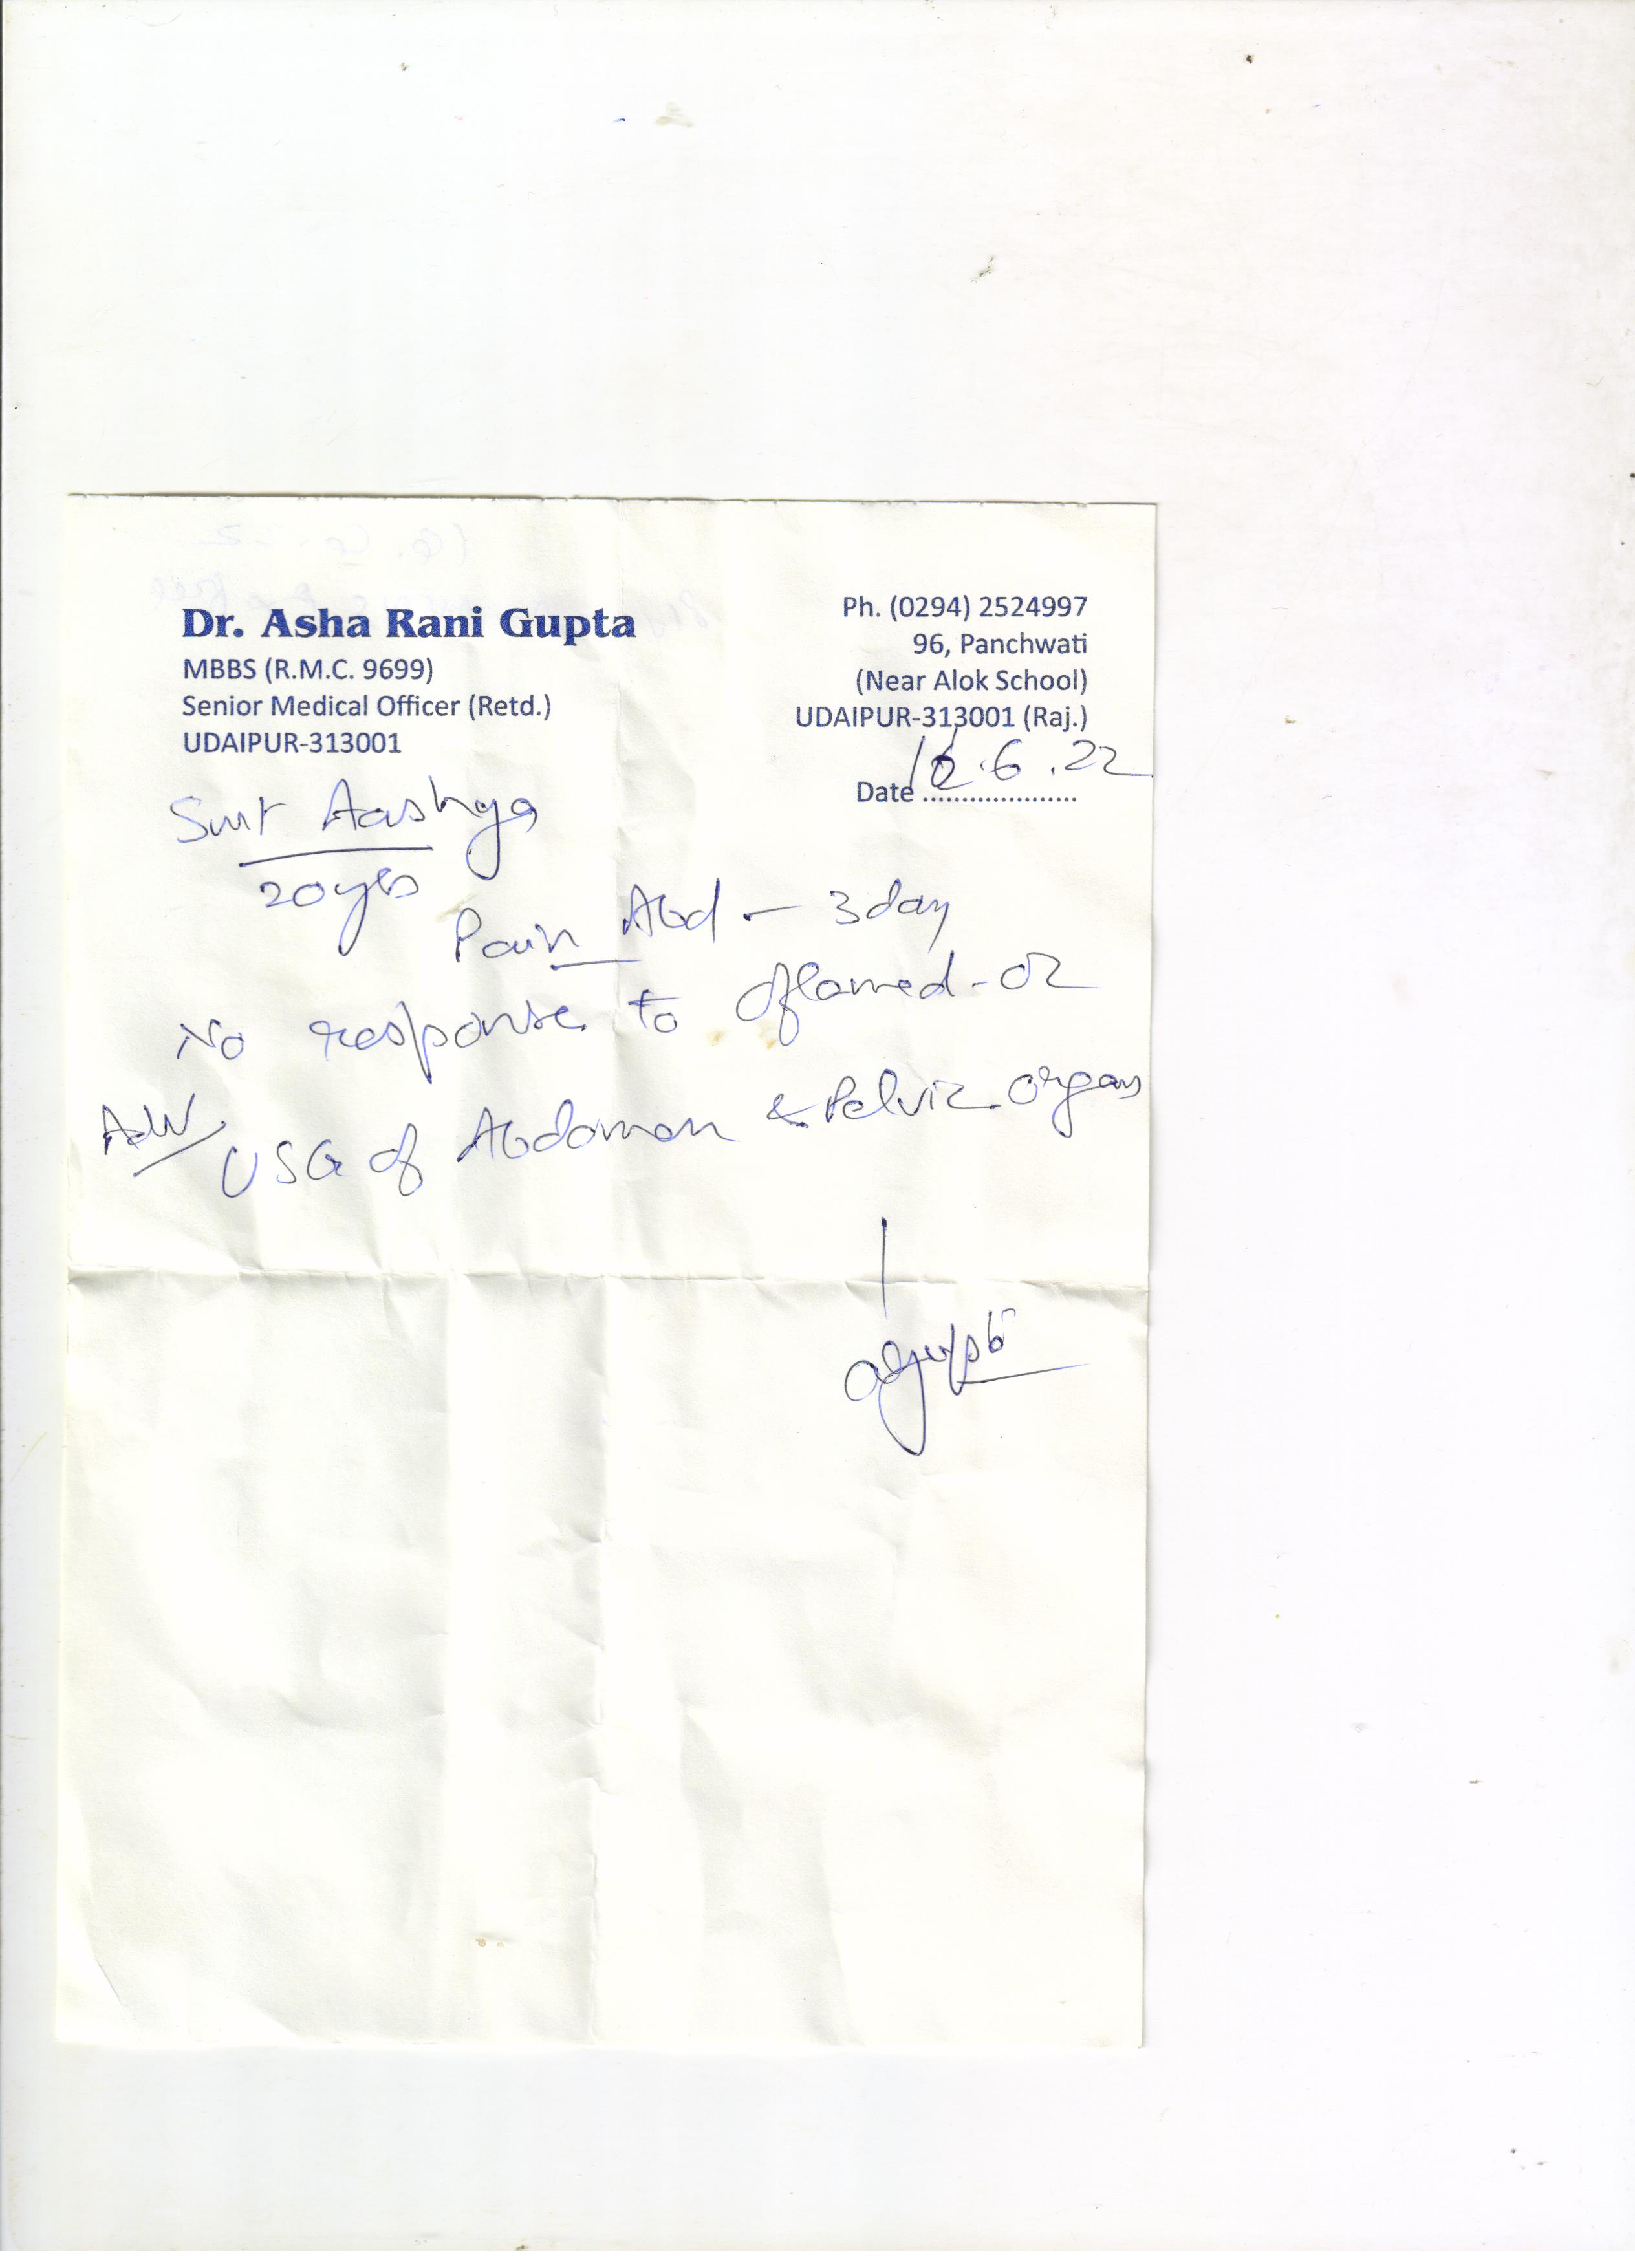 Dr. Asha Rani Gupta
MBBS (R.M.C. 9699)
Senior Medical Officer (Retd.)
UDAIPUR-313001
Ph. (0294) 2524997
96, Panchwati
(Near Alok School)
UDAIPUR-313001 (Raj.)
Date .6.22
Smt Aashya
20yrs
Pain Abd - 3 day
No response to oflamed-oz
Adv. USG of Abdomen & Pelvic organs